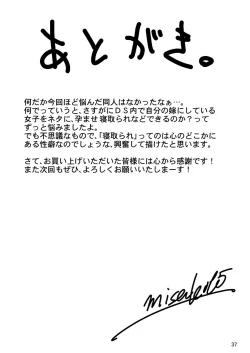 あとがき。
何だか今回ほど悩んだ同人はなかったなぁ…。
何でっていうと、さすがにDS内で自分の嫁にしている
女子をネタに、孕ませ寝取られなどできるのか？って
ずっと悩みましたよ。
でも不思議なもので、「寝取られ」ってのは心のどこかに
ある性癖なのでしょうな、興奮して描けたと思います。
さて、お買い上げいただいた皆様には心から感謝です！
また次回もぜひ、よろしくお願いいたしまーす！
37